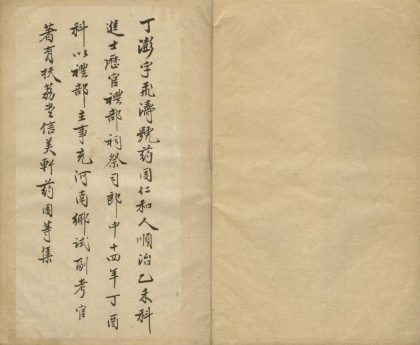 丁澎字飛濤號药园仁和人順治乙未科
進士歷官禮部祠祭司郎中十四年丁酉
科以禮部主事充河南鄉試副考官
著有扶荔堂信美軒药园等集